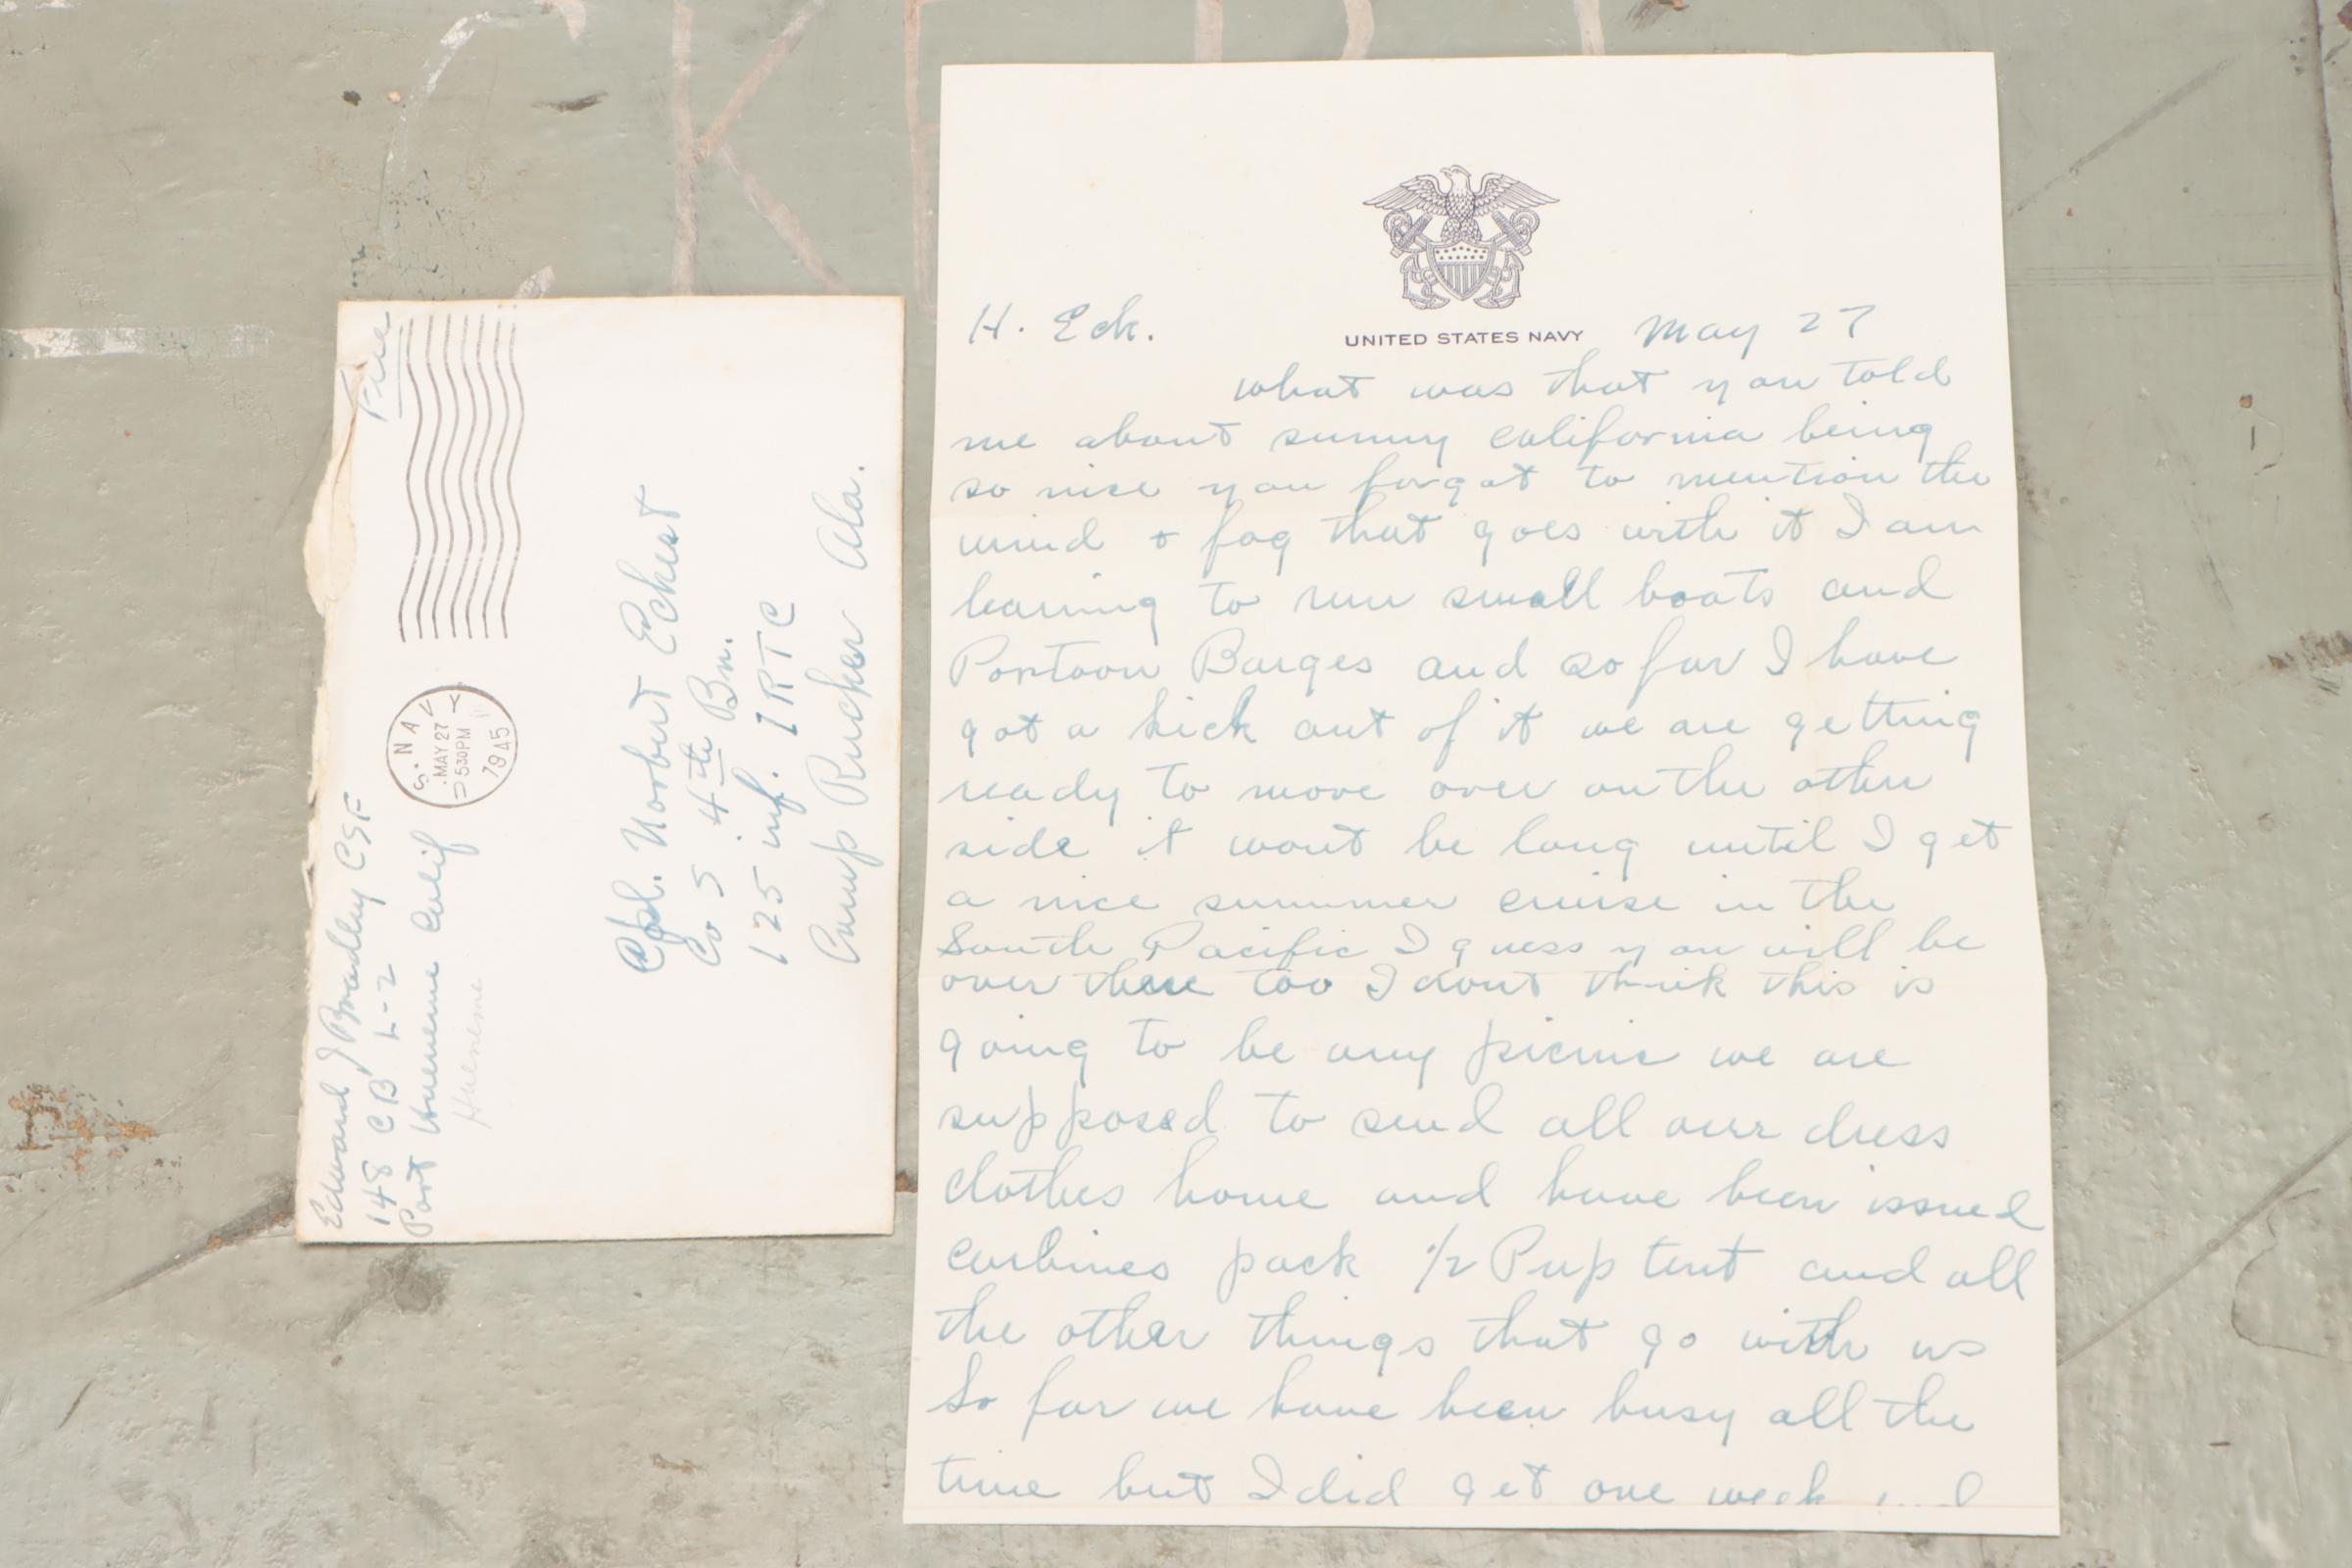 Free
U.S. NAVY
MAY 27
530PM
1945
Edward J Bradley CSF
148 CB L-2
Port Hueneme Calif
Hueneme
Cpl. Norbert Eckert
Co 5 4th Bn.
125 inf. IRTC
Camp Rucker Ala.
UNITED STATES NAVY
H. Eck. May 27
what was that you told
me about sunny california being
so nice you forgot to mention the
wind + fog that goes with it I am
learning to run small boats and
Pontoon Barges and so far I have
got a kick out of it we are getting
ready to move over on the other
side it wont be long until I get
a nice summer cruise in the
South Pacific I guess you will be
over there too I dont think this is
going to be any picnic we are
supposed to send all our dress
clothes home and have been issued
carbines pack 1/2 Pup tent and all
the other things that go with us
So far we have been busy all the
time but I did get one week